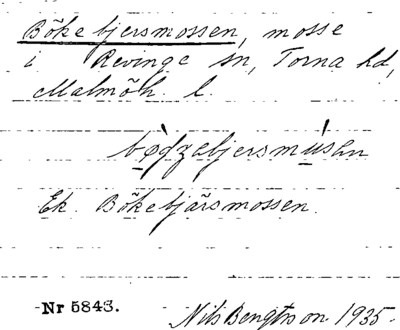 Bökebjersmossen, mosse
i Revinge sn, Torna hd,
Malmöh. l.
Ek. Bökebjärsmossen.
Nr 5843.
Nils Bengtsson 1935.